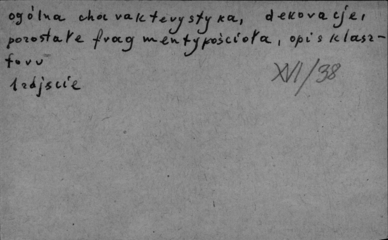 ogólna charakterystyka, dekoracje,
pozostałe fragmenty pościoła, opis klasz-
toru
1 zdjęcie
XVI/38